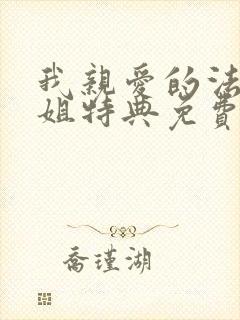 我親愛的法
姐特典免費
喬瑾湖